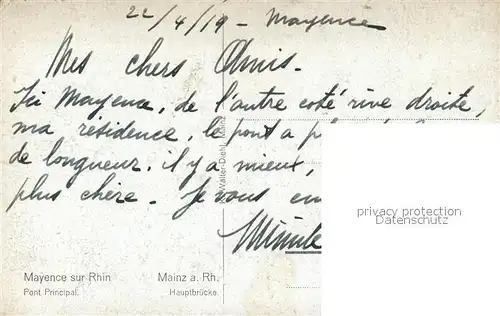 22/4/19 - Mayence
Mes chers Amis.
Ici Mayence, de l'autre coté rive droite,
ma résidence, le pont a
de longueur. il y a mieux,
plus chère. Je vous
privacy protection
Datenschutz
Mayence sur Rhin Mainz a. Rh.
Pont Principal. Hauptbrücke.